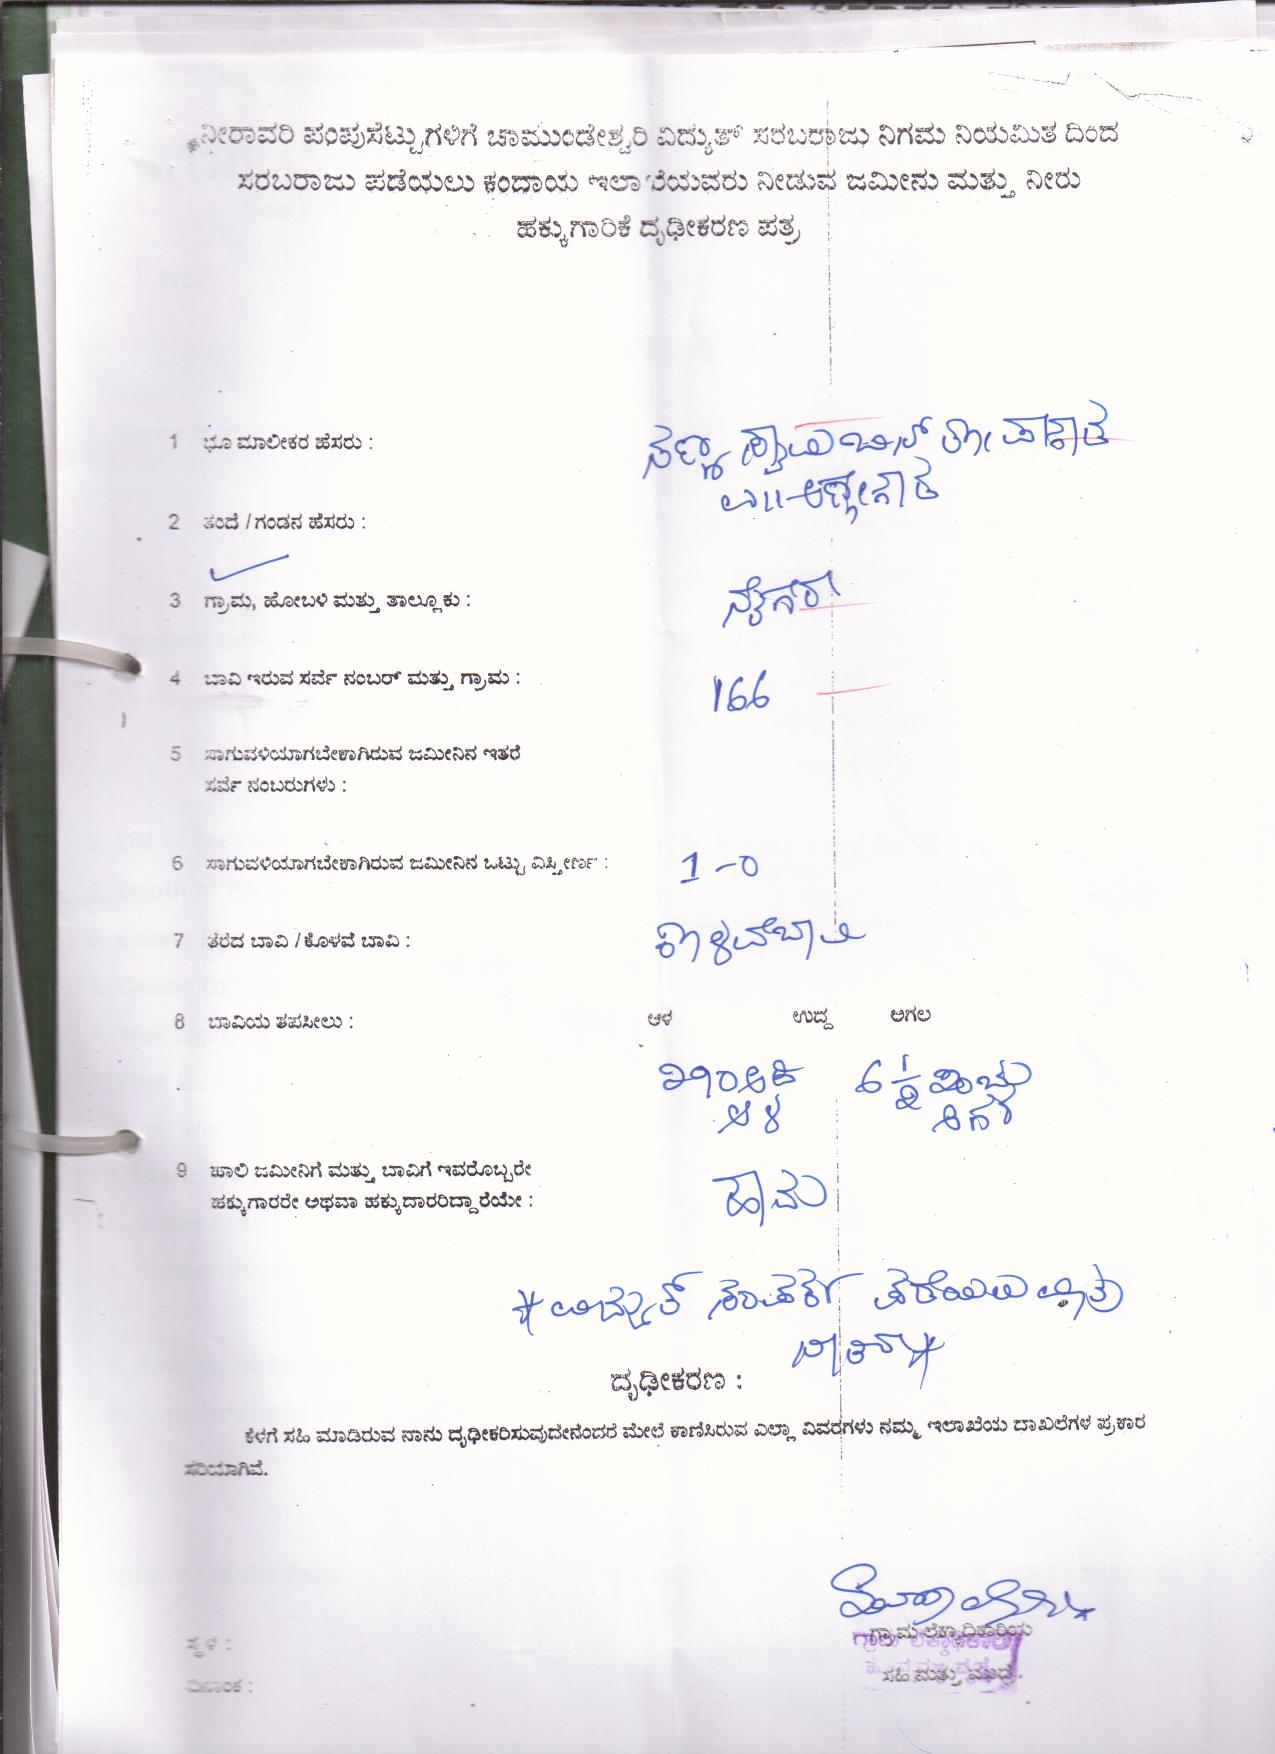 ನೀರಾವರಿ ಪಂಪುಸೆಟ್ಟುಗಳಿಗೆ ಚಾಮುಂಡೇಶ್ವರಿ ವಿದ್ಯುತ್ ಸರಬರಾಜು ನಿಗಮ ನಿಯಮಿತ ದಿಂದ
ಸರಬರಾಜು ಪಡೆಯಲು ಕಂದಾಯ ಇಲಾಖೆಯವರು ನೀಡುವ ಜಮೀನು ಮತ್ತು ನೀರು
ಹಕ್ಕುಗಾರಿಕೆ ದೃಢೀಕರಣ ಪತ್ರ
1 ಭೂ ಮಾಲೀಕರ ಹೆಸರು :
2 ತಂದೆ / ಗಂಡನ ಹೆಸರು :
3 ಗ್ರಾಮ, ಹೋಬಳಿ ಮತ್ತು ತಾಲ್ಲೂಕು :
4 ಬಾವಿ ಇರುವ ಸರ್ವೆ ನಂಬರ್ ಮತ್ತು ಗ್ರಾಮ : 166
5 ಸಾಗುವಳಿಯಾಗಬೇಕಾಗಿರುವ ಜಮೀನಿನ ಇತರೆ
ಸರ್ವೆ ನಂಬರುಗಳು :
6 ಸಾಗುವಳಿಯಾಗಬೇಕಾಗಿರುವ ಜಮೀನಿನ ಒಟ್ಟು ವಿಸ್ತೀರ್ಣ : 1-0
7 ತೆರೆದ ಬಾವಿ / ಕೊಳವೆ ಬಾವಿ : ಕೊಳವೆಬಾವಿ
8 ಬಾವಿಯ ತಪಸೀಲು : ಆಳ ಉದ್ದ ಅಗಲ
ಅಡಿ 6 1/2 ಇಂಚು
ಆಳ ಅಗಲ
9 ಖಾಲಿ ಜಮೀನಿಗೆ ಮತ್ತು ಬಾವಿಗೆ ಇವರೊಬ್ಬರೇ
ಹಕ್ಕುಗಾರರೇ ಅಥವಾ ಹಕ್ಕುದಾರರಿದ್ದಾರೆಯೇ : ಹೌದು
* ವಿದ್ಯುತ್ ಸಂಪರ್ಕ ಪಡೆಯಲು
ಮಾತ್ರ *
ದೃಢೀಕರಣ :
ಕೆಳಗೆ ಸಹಿ ಮಾಡಿರುವ ನಾನು ದೃಢೀಕರಿಸುವುದೇನೆಂದರೆ ಮೇಲೆ ಕಾಣಿಸಿರುವ ಎಲ್ಲಾ ವಿವರಗಳು ನಮ್ಮ ಇಲಾಖೆಯ ದಾಖಲೆಗಳ ಪ್ರಕಾರ
ಸರಿಯಾಗಿವೆ.
ಗ್ರಾಮ ಲೆಕ್ಕಾಧಿಕಾರಿಯ
ಸ್ಥಳ :
ಸಹಿ ಮತ್ತು ಮುದ್ರೆ.
ದಿನಾಂಕ :